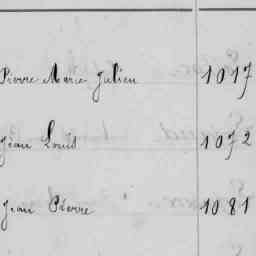 Pierre Marie Julien 1017
Jean Louis 1072
Jean Pierre 1081